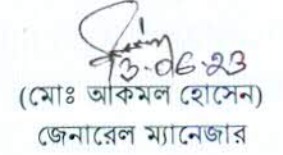 13-06-23
(মোঃ আকমল হোসেন)
জেনারেল ম্যানেজার